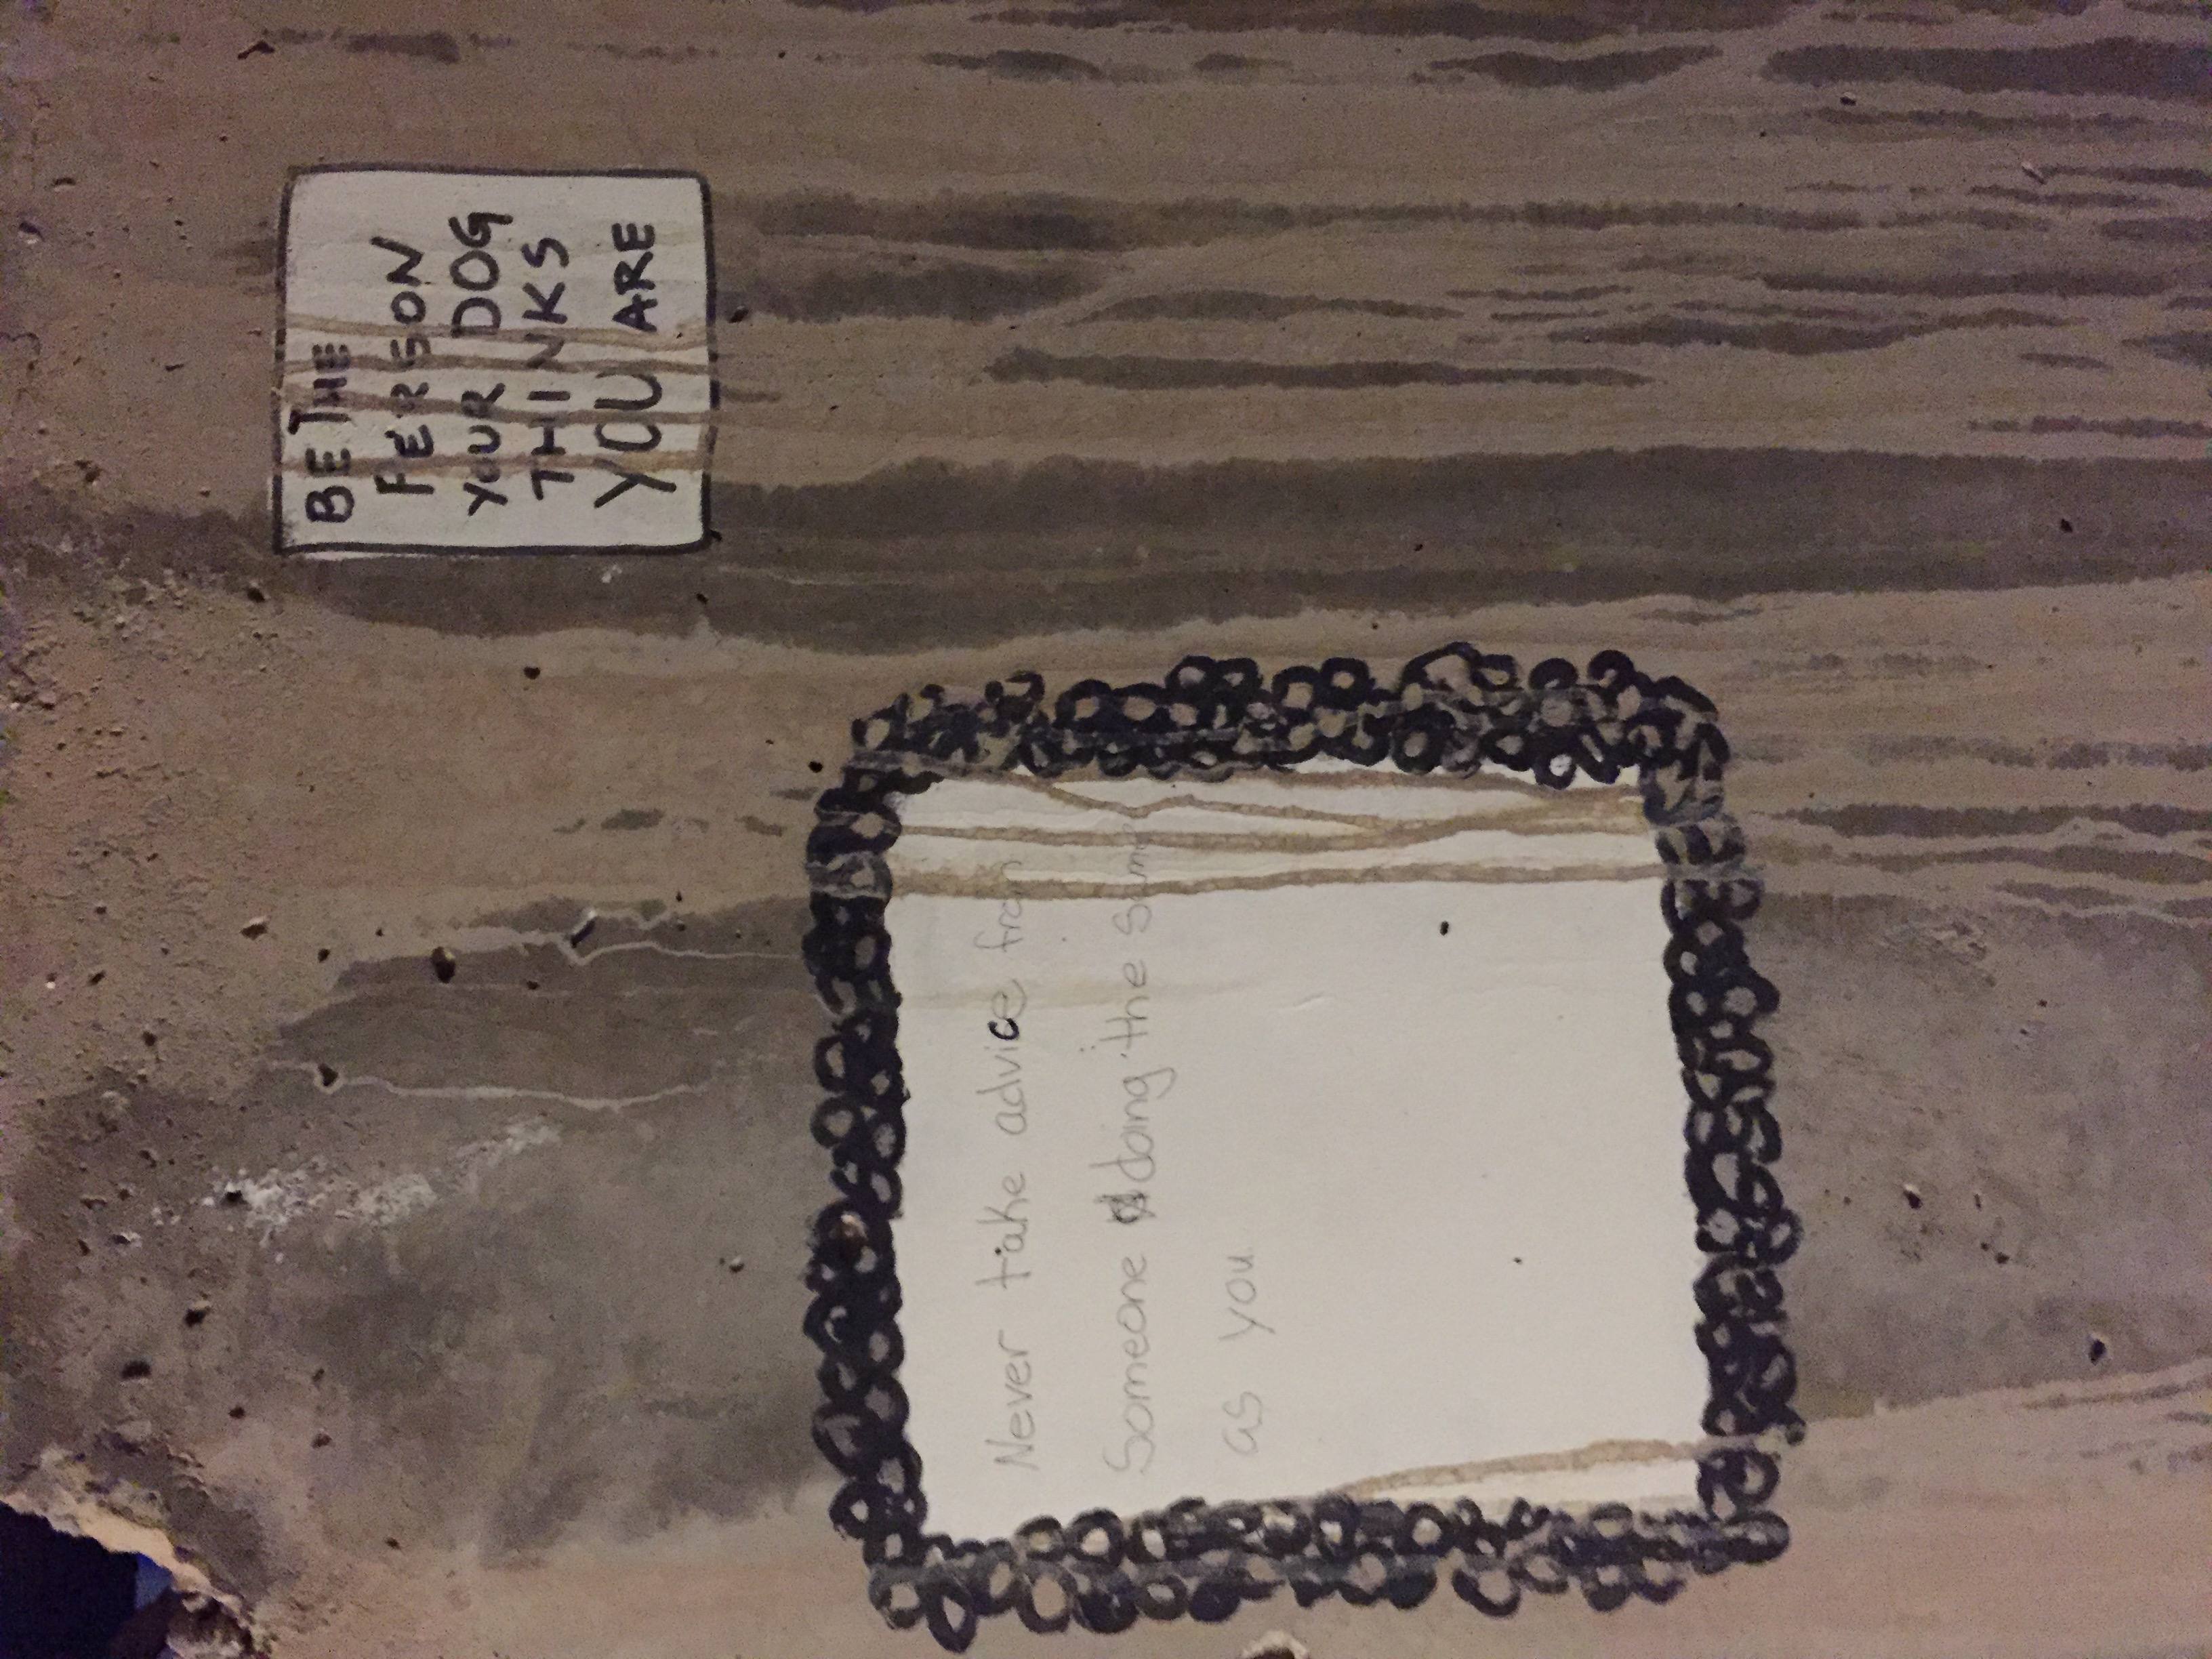 BE THE
PERSON
YOUR DOG
THINKS
YOU ARE
Never take advice from
Someone doing the same
as you